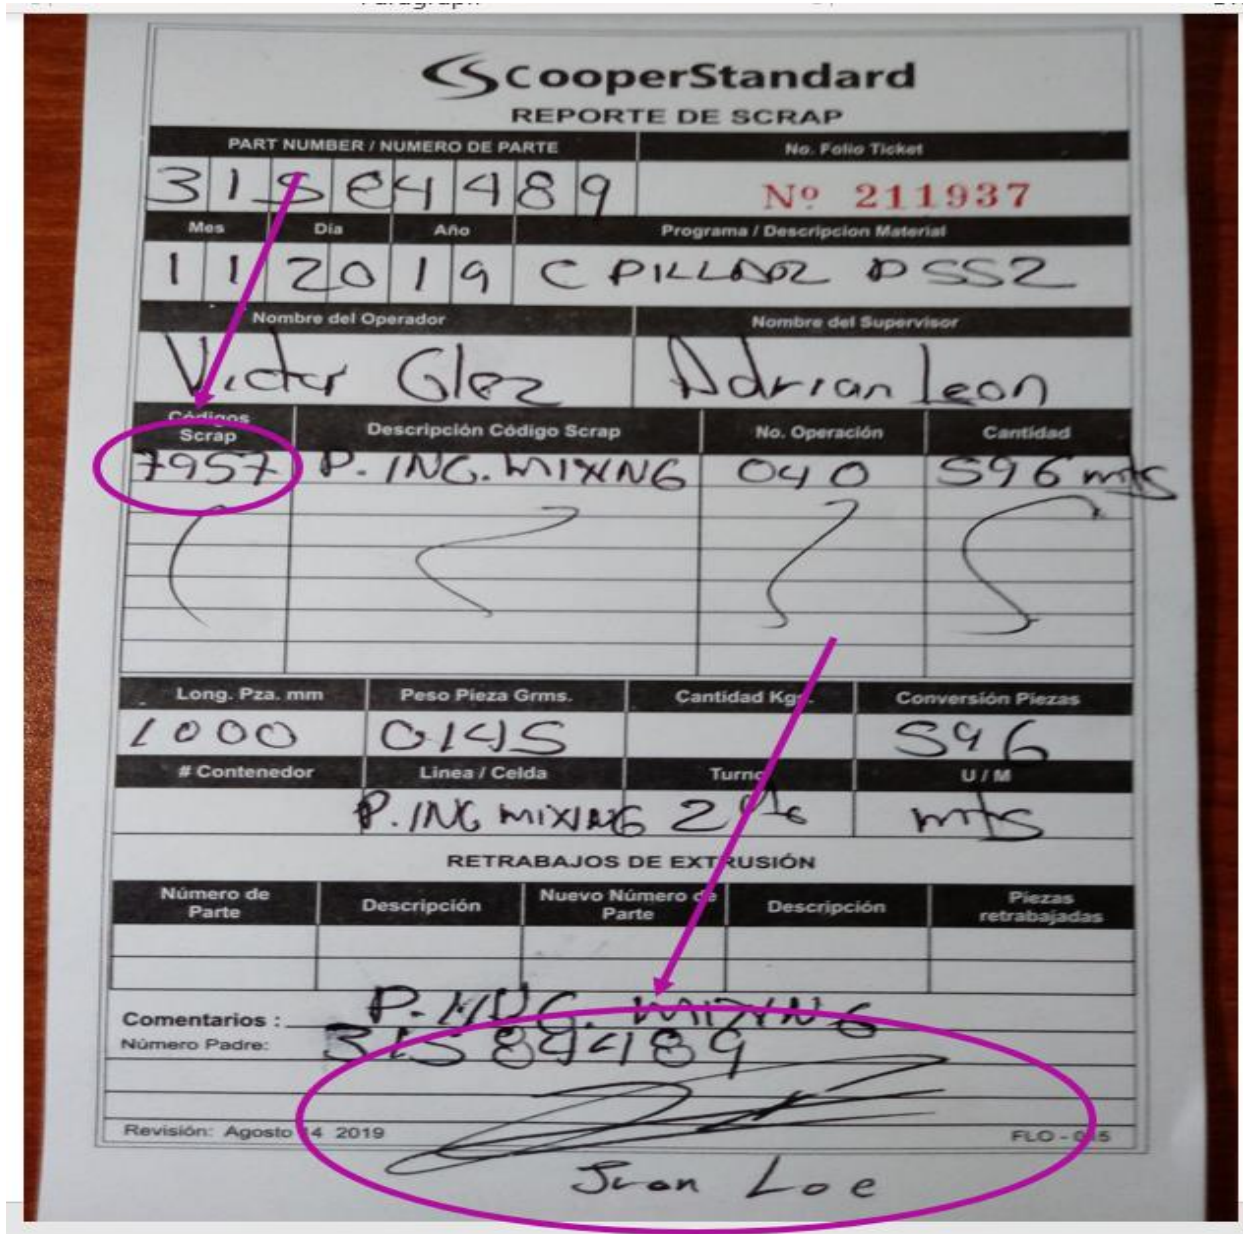 CooperStandard
REPORTE DE SCRAP
PART NUMBER / NUMERO DE PARTE No. Folio Ticket
31Se4489 Nº 211937
Mes Día Año Programa / Descripcion Material
11 20 19 C PILLAR DSS2
Nombre del Operador Nombre del Supervisor
Victor Glez Adrian Leon
Códigos Scrap Descripción Código Scrap No. Operación Cantidad
7957 P. ING. MIXNG 040 596 mts
Long. Pza. mm Peso Pieza Grms. Cantidad Kgs. Conversión Piezas
1000 0145 596
# Contenedor Linea / Celda Turno U / M
P. ING MIXING 2 mts
RETRABAJOS DE EXTRUSIÓN
Número de Parte Descripción Nuevo Número de Parte Descripción Piezas retrabajadas
Comentarios : P. ING. MIXING
Número Padre: 31584489
Revisión: Agosto 14 2019 FLO - 015
Juan Loe